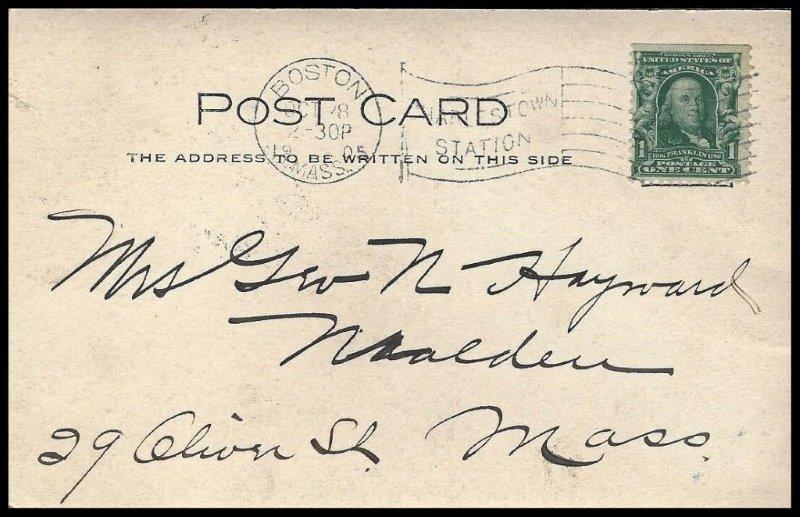 SERIES 1902
UNITED STATES OF
AMERICA
BOSTON
OCT 28
2-30P
19 05
MASS.
STATION
POST CARD
THE ADDRESS TO BE WRITTEN ON THIS SIDE
1 FRANKLIN 1
POSTAGE
ONE CENT
Mrs Geo N Hayward
Maalden
29 Oliver St. Mass.